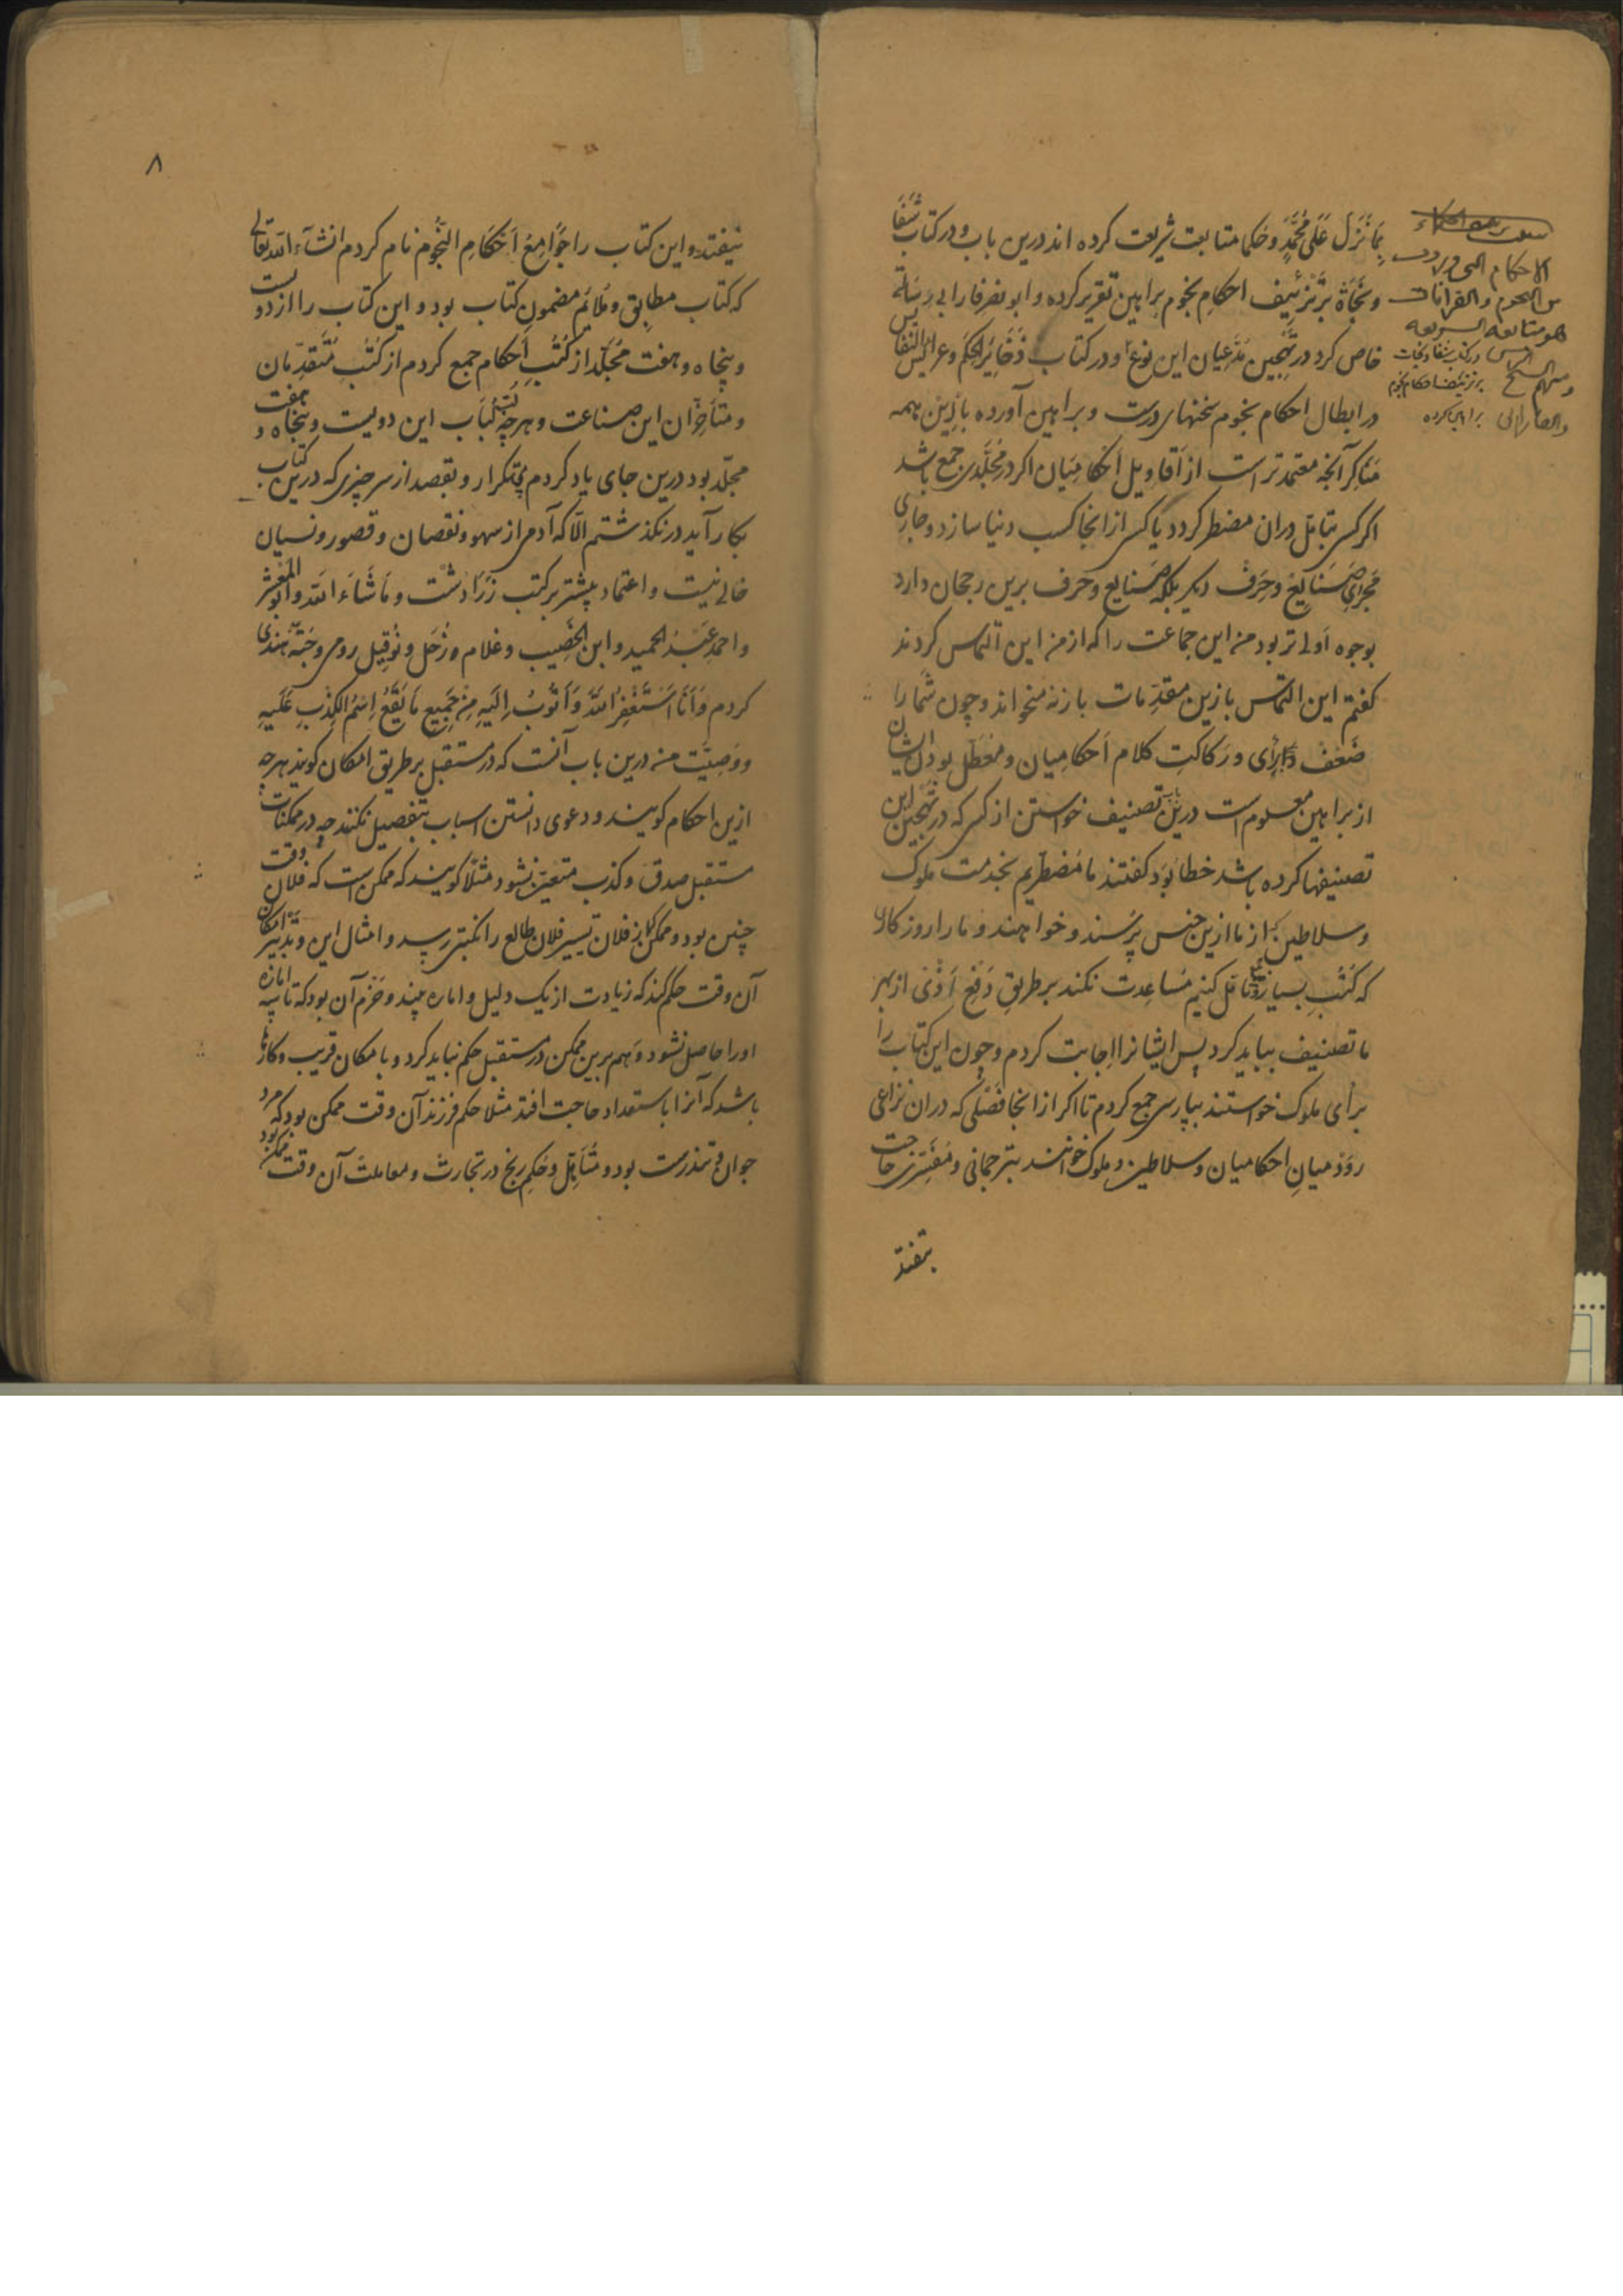 بِمَا نُزِّلَ عَلَى مُحَمَّدٍ و حکما متابعت شریعت کرده اند درین باب و در کتاب شفا
و نجاة بر تزئیف احکام نجوم براهین تقریر کرده و ابو نصر فارابی رسالة
خاص کرد در تهجین مدعیان این نوع و در کتاب ذخایر الحکم و عرایس النفایس
در ابطال احکام نجوم سخنهای درست و براهین آورده بازین همه
منکر آنچه معتمدتر است از اقاویل احکامیان اکر در مجلدی جمع باشد
اکر کسی بتامل دران مضطر کردد یا کسی از انجا کسب دنیا سازد و جاری
مجرای صنایع و حرف دیکر بلکه صنایع و حرف برین رجحان دارد
بوجوه اولی تر بود من این جماعت را که از من این التماس کردند
کفتم این التماس بازین مقدمات بازنمیخواند و چون شما را
ضعف رای و رکاکت کلام احکامیان و معطل بودن ایشان
از براهین معلوم است درین باب تصنیف خواستن از کسی که در تهجین این
تصنیفها کرده باشد خطا بود کفتند ما مضطریم بخدمت ملوک
و سلاطین که از ما ازین جنس پرسند و خواهند و ما را روزکار
که کتب بسیار را تامل کنیم مساعدت نکند بر طریق دفع اذی از بهر
ما تصنیف بباید کرد پس ایشانرا اجابت کردم و چون این کتاب را
برای ملوک خواستند بپارسی جمع کردم تا اکر از انجا فصلی که دران نزاعی
رود میان احکامیان و سلاطین و ملوک خوانند بترجمانی و مفسری حاجت
بیفتد
الاحکام
من النجوم والقرانات
هو متابعه الشریعه
در کتاب شفا و نجات
بر تزئیف احکام نجوم
براهین کرده
۸
نیفتد و این کتاب را جَوَامِعُ اَحْکَامِ النُّجُوم نام کردم انشآء الله تعالی
که کتاب مطابق و ملائم مضمون کتاب بود و این کتاب را از دویست
و پنجاه و هفت مجلد از کتب احکام جمع کردم از کتب متقدمان
و متأخران این صناعت و هرچه لباب این دویست و پنجاه و هفت
مجلد بود درین جای یاد کردم بی تکرار و بقصد از سر چیزی که درین کتاب
بکار آید درنکذشتم الّا که آدمی از سهو و نقصان و قصور و نسیان
خالی نیست و اعتماد بیشتر بر کتب زرادشت و ماشاء الله و ابو المعشر
و احمد عبد الحمید و ابن الخصیب و غلام زحل و نوقیل رومی و جنه هندی
کردم وَ اَنَا اَسْتَغْفِرُ اللهَ وَ اَتُوبُ اِلَیهِ مِنْ جَمِیعِ مَا یَقَعُ اِسْمُ الکِذْبِ عَلَیهِ
و وصیت من درین باب آنست که در مستقبل بر طریق امکان کویند هرچه
ازین احکام کویند و دعوی دانستن اسباب بتفصیل نکنند چه در ممکنات
مستقبل صدق و کذب متعین نشود مثلا کویند که ممکن است که فلان وقت
چنین بود و ممکن که از فلان تسییر فلان طالع را نکبتی رسد و امثال این و بتدبیر امکان
آن وقت حکم کند که زیادت از یک دلیل و اماره بیند و حزم آن بود که تا سه امارة
او را حاصل نشود و هم برین ممکن در مستقبل حکم نباید کرد و بامکان قریب و کارها
باشد که آنرا باستعداد حاجت افتد مثلا حکم فرزند آن وقت ممکن بود که مرد
جوان و تندرست بود و متأهل و حکم ربح در تجارت و معاملت آن وقت ممکن بود